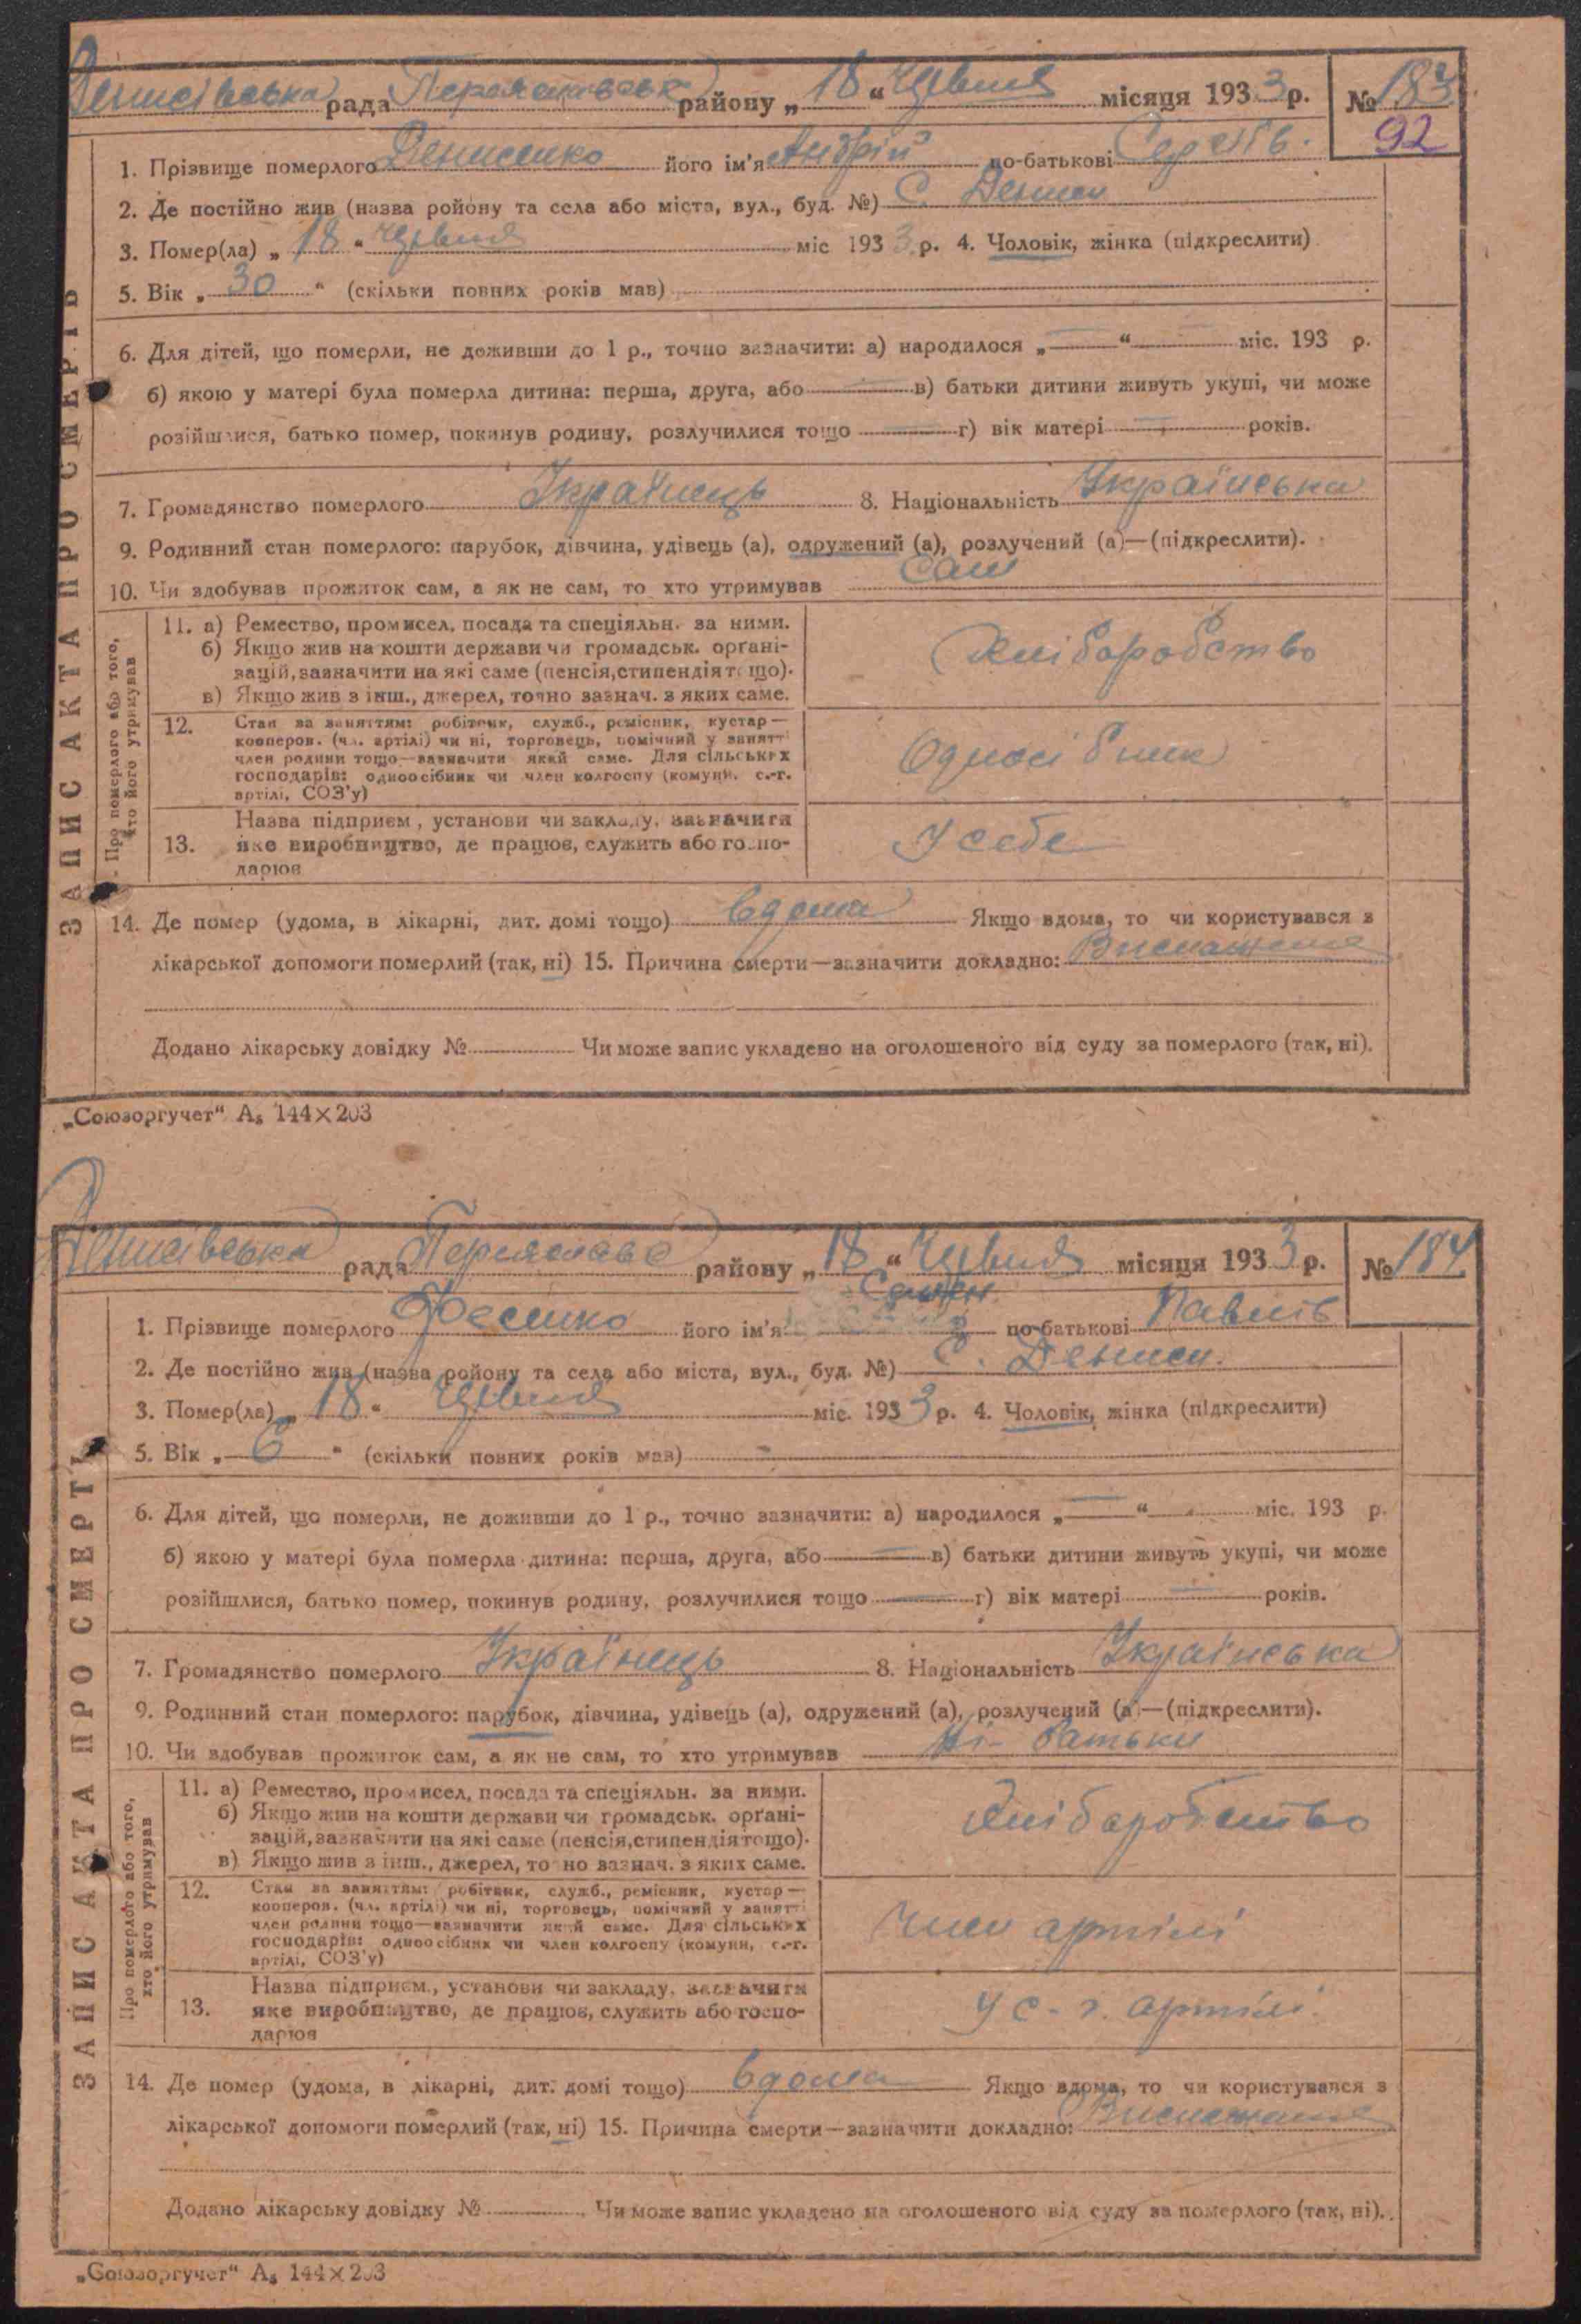 Денисівська рада Переяславськ району „18“ Червня місяця 1933 р. № 183
92
1. Прізвище померлого Денисенко його ім'я Андрій по-батькові Сергіїв.
2. Де постійно жив (назва ройону та села або міста, вул., буд. №) С. Дениси
3. Помер(ла) „18“ Червня міс 1933 р. 4. Чоловік, жінка (підкреслити)
5. Вік „30“ (скільки повних років мав)
6. Для дітей, що померли, не доживши до 1 р., точно зазначити: а) народилося „—“ — міс. 193 р.
б) якою у матері була померла дитина: перша, друга, або — в) батьки дитини живуть укупі, чи може
розійшлися, батько помер, покинув родину, розлучилися тощо — г) вік матері — років.
7. Громадянство померлого Українець 8. Національність Українська
9. Родинний стан померлого: парубок, дівчина, удівець (а), одружений (а), розлучений (а)—(підкреслити).
10. Чи здобував прожиток сам, а як не сам, то хто утримував Сам
ЗАПИС АКТА ПРО СМЕРТЬ
Про померлого або того,
хто його утримував
11. а) Ремество, промисел, посада та спеціяльн. за ними.
б) Якщо жив на кошти держави чи громадськ. орґані-
зацій, зазначити на які саме (пенсія, стипендія тощо).
в) Якщо жив з інш., джерел, точно зазнач. з яких саме.
Хліборобство
12. Стан за заняттям: робітник, служб., ремісник, кустар—
кооперов. (чл. артілі) чи ні, торговець, помічний у занятті
член родини тощо—зазначити який саме. Для сільських
господарів: одноосібник чи член колгоспу (комуни, с.-г.
артілі, СОЗ'у)
Односібник
Назва підприєм., установи чи закладу, зазначити
13. яке виробництво, де працює, служить або госпо-
дарює
У себе
14. Де помер (удома, в лікарні, дит. домі тощо) вдома Якщо вдома, то чи користувався з
лікарської допомоги померлий (так, ні) 15. Причина смерти—зазначити докладно: Виснаження
Додано лікарську довідку № Чи може запис укладено на оголошеного від суду за померлого (так, ні).
„Союзоргучет“ А₅ 144×203
Денисівська рада Переяславс району „18“ Червня місяця 1933 р. № 184
1. Прізвище померлого Фесенко його ім'я Семен по-батькові Павлів
2. Де постійно жив (назва ройону та села або міста, вул., буд. №) С. Дениси.
3. Помер(ла) „18“ Червня міс. 1933 р. 4. Чоловік, жінка (підкреслити)
5. Вік „6“ (скільки повних років мав) –
6. Для дітей, що померли, не доживши до 1 р., точно зазначити: а) народилося „—“ міс. 193 р.
б) якою у матері була померла дитина: перша, друга, або — в) батьки дитини живуть укупі, чи може
розійшлися, батько помер, покинув родину, розлучилися тощо — г) вік матері — років.
7. Громадянство померлого Українець 8. Національність Українська
9. Родинний стан померлого: парубок, дівчина, удівець (а), одружений (а), розлучений (а)—(підкреслити).
10. Чи здобував прожиток сам, а як не сам, то хто утримував Ні – батьки
ЗАПИС АКТА ПРО СМЕРТЬ
Про померлого або того,
хто його утримував
11. а) Ремество, промисел, посада та спеціяльн. за ними.
б) Якщо жив на кошти держави чи громадськ. орґані-
зацій, зазначити на які саме (пенсія, стипендія тощо).
в) Якщо жив з інш., джерел, точно зазнач. з яких саме.
Хліборобство
12. Стан за заняттям: робітник, служб., ремісник, кустар—
кооперов. (чл. артілі) чи ні, торговець, помічний у занятті
член родини тощо—зазначити який саме. Для сільських
господарів: одноосібник чи член колгоспу (комуни, с.-г.
артілі, СОЗ'у)
Член артілі
Назва підприєм., установи чи закладу, зазначити
13. яке виробництво, де працює, служить або госпо-
дарює
У с-г. артілі.
14. Де помер (удома, в лікарні, дит. домі тощо) вдома Якщо вдома, то чи користувався з
лікарської допомоги померлий (так, ні) 15. Причина смерти—зазначити докладно: Виснаження
Додано лікарську довідку № Чи може запис укладено на оголошеного від суду за померлого (так, ні).
„Союзоргучет“ А₅ 144×203